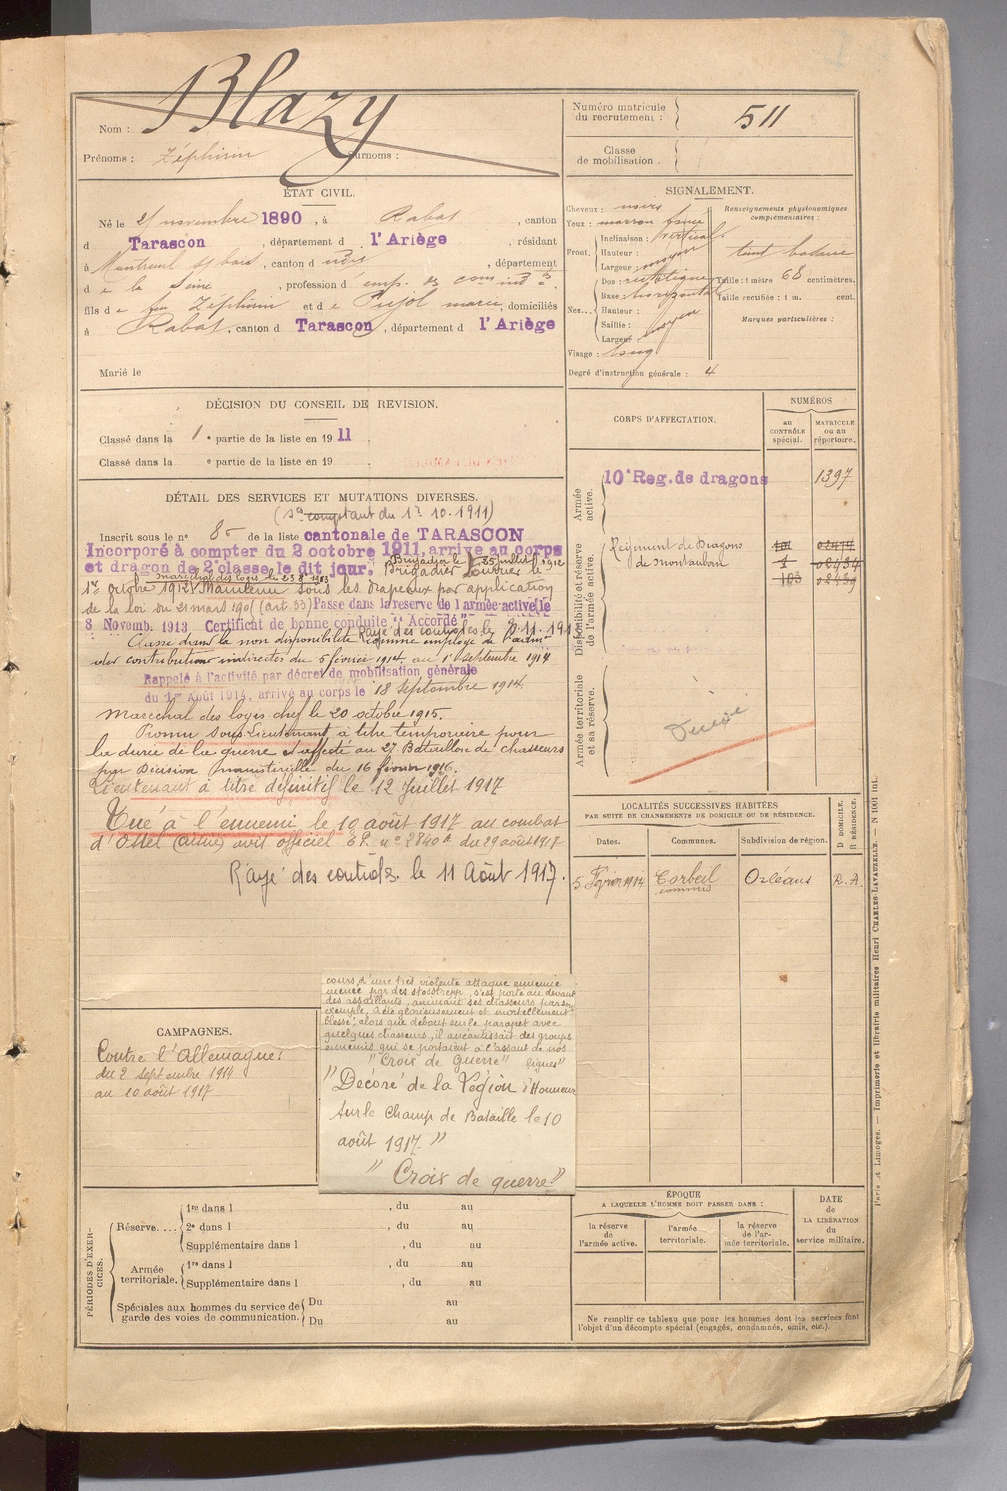 Nom : Blazy
Prénoms : Zéphirin Surnoms :
Numéro matricule du recrutement : 511
Classe de mobilisation .
ÉTAT CIVIL.
Né le novembre 1890, à Rabat, canton
d Tarascon, département d l'Ariège, résidant
à Montreuil s/ bois, canton d udis, département
d e la Seine, profession d emp.
fils d e feu Zéphirin et d e Pujol marie, domiciliés
à Rabat, canton d Tarascon, département d l'Ariège
Marié le
SIGNALEMENT.
Cheveux : noirs
Yeux : marron foncé
Front. Inclinaison : vertical
Hauteur :
Largeur : moyen
Nez... Dos : rectiligne
Base : horizontal
Hauteur :
Saillie :
Largeur : moyen
Visage : long
Degré d'instruction générale : 4
Renseignements physionomiques complémentaires :
teint
Taille : 1 mètre 68 centimètres.
Taille rectifiée : 1 m. cent.
Marques particulières :
DÉCISION DU CONSEIL DE REVISION.
Classé dans la 1 e partie de la liste en 1911.
Classé dans la e partie de la liste en 19 .
DÉTAIL DES SERVICES ET MUTATIONS DIVERSES.
(Sce comptant du 1er 10.1911)
Inscrit sous le n° 85 de la liste cantonale de TARASCON
Incorporé à compter du 2 octobre 1911, arrive au corps
et dragon de 2e classe le dit jour. Brigadier le 25 juillet 1912
Brigadier Fourrier le
1er octobre 1912. maréchal des logis le 23 8bre 1913 Maintenu sous les drapeaux par application
de la loi du 21 mars 1905 (art. 33) Passe dans la reserve de l'armée active le
8 Novemb. 1913 Certificat de bonne conduite "Accordé"
Rayé des contrôles le
Classé dans la non disponibilité comme employé de
des contributions indirectes du 5 février 1914 au 1er septembre 1914
Rappelé à l'activité par décret de mobilisation générale
du 1er Août 1914, arrivé au corps le 18 septembre 1914.
Maréchal des logis chef le 20 octobre 1915.
Promu Sous Lieutenant à titre temporaire pour
la durée de la guerre et affecté au 27 Bataillon de Chasseurs
par Décision ministérielle du 16 février 1916.
Lieutenant à titre définitif le 12 Juillet 1917
Tué à l'ennemi le 10 août 1917 au combat
d'Ostel (Aisne) avis officiel du 29 août 1917
Rayé des contrôles le 11 Août 1917.
CORPS D'AFFECTATION.
NUMÉROS
au CONTRÔLE spécial.
MATRICULE ou au répertoire.
Armée active.
10e Reg. de dragons 1397
Disponibilité et réserve de l'armée active.
Régiment de Dragons
de Montauban
Armée territoriale et sa réserve.
LOCALITÉS SUCCESSIVES HABITÉES
PAR SUITE DE CHANGEMENTS DE DOMICILE OU DE RÉSIDENCE.
Dates. Communes. Subdivision de région. D DOMICILE. R RÉSIDENCE.
5 Février 1914 Corbeil Orléans R.A.
CAMPAGNES.
Contre l'Allemagne :
du 2 septembre 1914
au 10 août 1917
cours d'une très violente attaque ennemie
menée par des s'est porté au devant
des assaillants, animant ses chasseurs par son
exemple, a été glorieusement et mortellement
blessé, alors que debout sur le parapet avec
quelques chasseurs, il anéantissait des groupes
ennemis qui se portaient à l'assaut de nos
lignes"
"Croix de Guerre"
"Décoré de la Légion d'Honneur
sur le Champ de Bataille le 10
août 1917"
"Croix de guerre"
PÉRIODES D'EXERCICES.
Réserve.... 1re dans l , du au
2e dans l , du au
Supplémentaire dans l , du au
Armée territoriale. 1re dans l , du au
Supplémentaire dans l , du au
Spéciales aux hommes du service de garde des voies de communication. Du au
Du au
ÉPOQUE
A LAQUELLE L'HOMME DOIT PASSER DANS :
la réserve de l'armée active.
l'armée territoriale.
la réserve de l'armée territoriale.
DATE de LA LIBÉRATION du service militaire.
Ne remplir ce tableau que pour les hommes dont les services font
l'objet d'un décompte spécial (engagés, condamnés, omis, etc.).
Paris et Limoges. — Imprimerie et librairie militaires Henri CHARLES-LAVAUZELLE. — N° 1001 int.